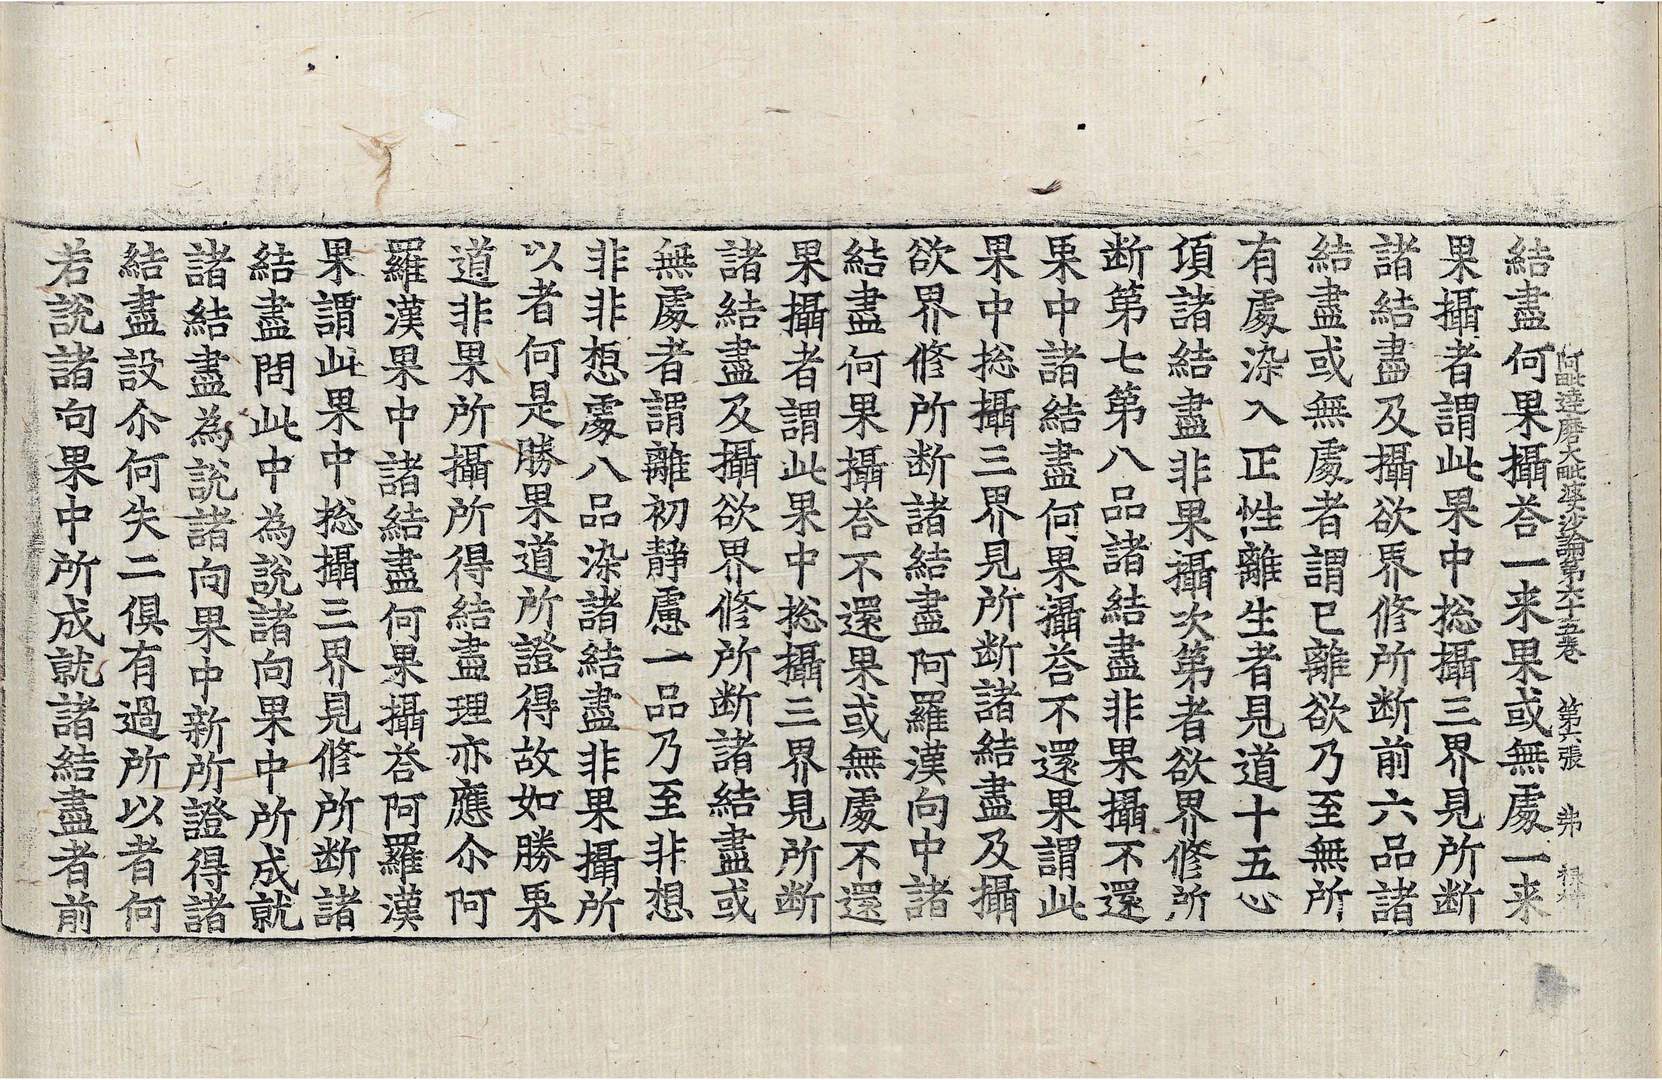 阿毗達磨大毗婆沙論第六十五卷 第六張 弗
結盡何果攝荅一来果或無處一来
果攝者謂此果中捴攝三界見所断
諸結盡及攝欲界修所断前六品諸
結盡或無處者謂已離欲乃至無所
有處染入正性離生者見道十五心
項諸結盡非果攝次第者欲界修所
断第七第八品諸結盡非果攝不還
果中諸結盡何果攝荅不還果謂此
果中捴攝三界見所断諸結盡及攝
欲界修所断諸結盡阿羅漢向中諸
結盡何果攝荅不還果或無處不還
果攝者謂此果中捴攝三界見所断
諸結盡及攝欲界修所断諸結盡或
無處者謂離初靜慮一品乃至非想
非非想處八品染諸結盡非果攝所
以者何是勝果道所證得故如勝果
道非果所攝所得結盡理亦應尒阿
羅漢果中諸結盡何果攝荅阿羅漢
果謂此果中捴攝三界見修所断諸
結盡問此中為說諸向果中所成就
諸結盡為說諸向果中新所證得諸
結盡設尒何失二俱有過所以者何
若說諸向果中所成就諸結盡者前